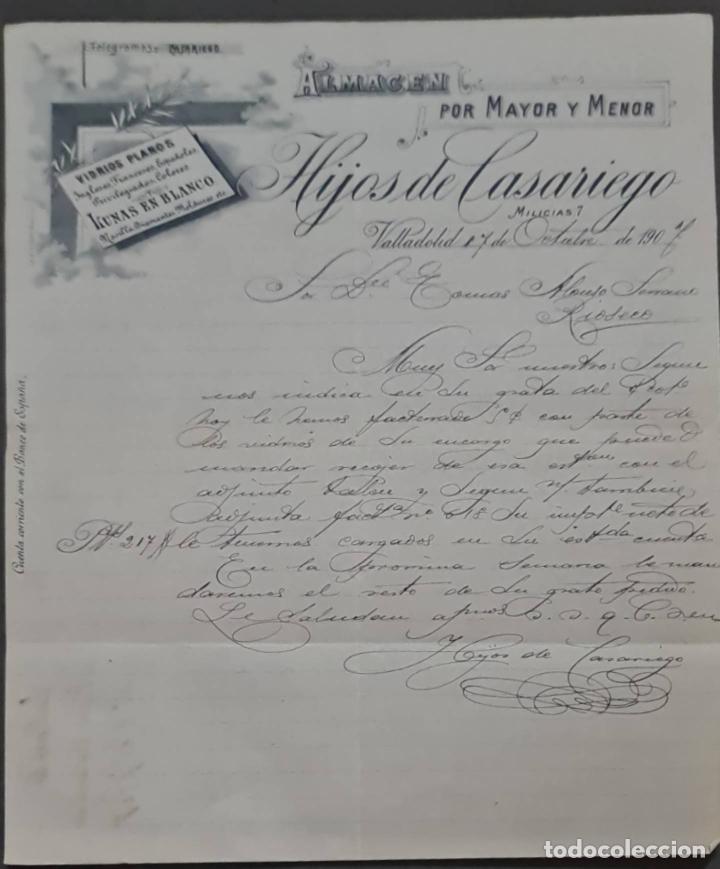 Telegramas: CASARIEGO
ALMACEN
POR MAYOR Y MENOR
VIDRIOS PLANOS
Ingleses, Franceses, Españoles
Privilegiados, Colores
LUNAS EN BLANCO
Masilla, Diamantes, Molduras etc.
Hijos de Casariego
MILICIAS, 7
Valladolid 17 de Octubre de 1907
Sor Dn Tomas Alonso Serrano
Rioseco
Muy Sor nuestro: Segun
nos indica en su grata del
hoy le hemos facturado con parte de
los vidrios de su encargo que puede
mandar recojer de esa eston con el
adjunto talon y segun tambien
adjunta factra nº 618 su impte noto de
Pts 217 le tenemos cargados en su estda cuenta
En la proxima semana le man
daremos el resto de su grato pedido.
Le saludan afmos S. S. q. b. s. m
Hijos de Casariego
Cuenta corriente con el Banco de España.
todocoleccion.net